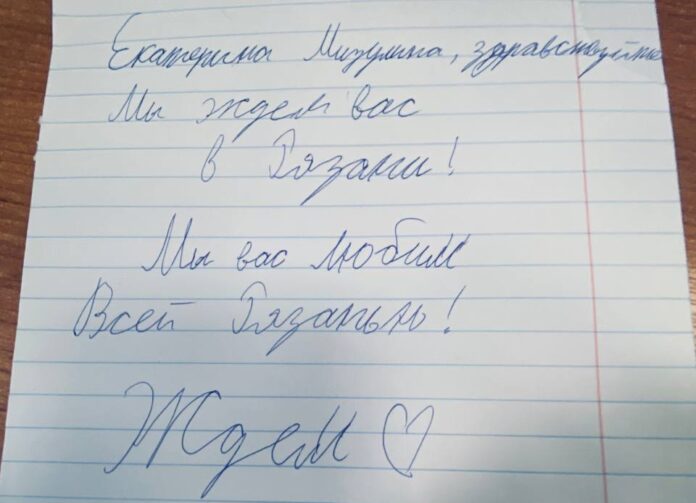 Екатерина Мизулина, здравствуйте
Мы ждем вас
в Рязани!
Мы вас любим
Всей Рязанью!
Ждем ♡